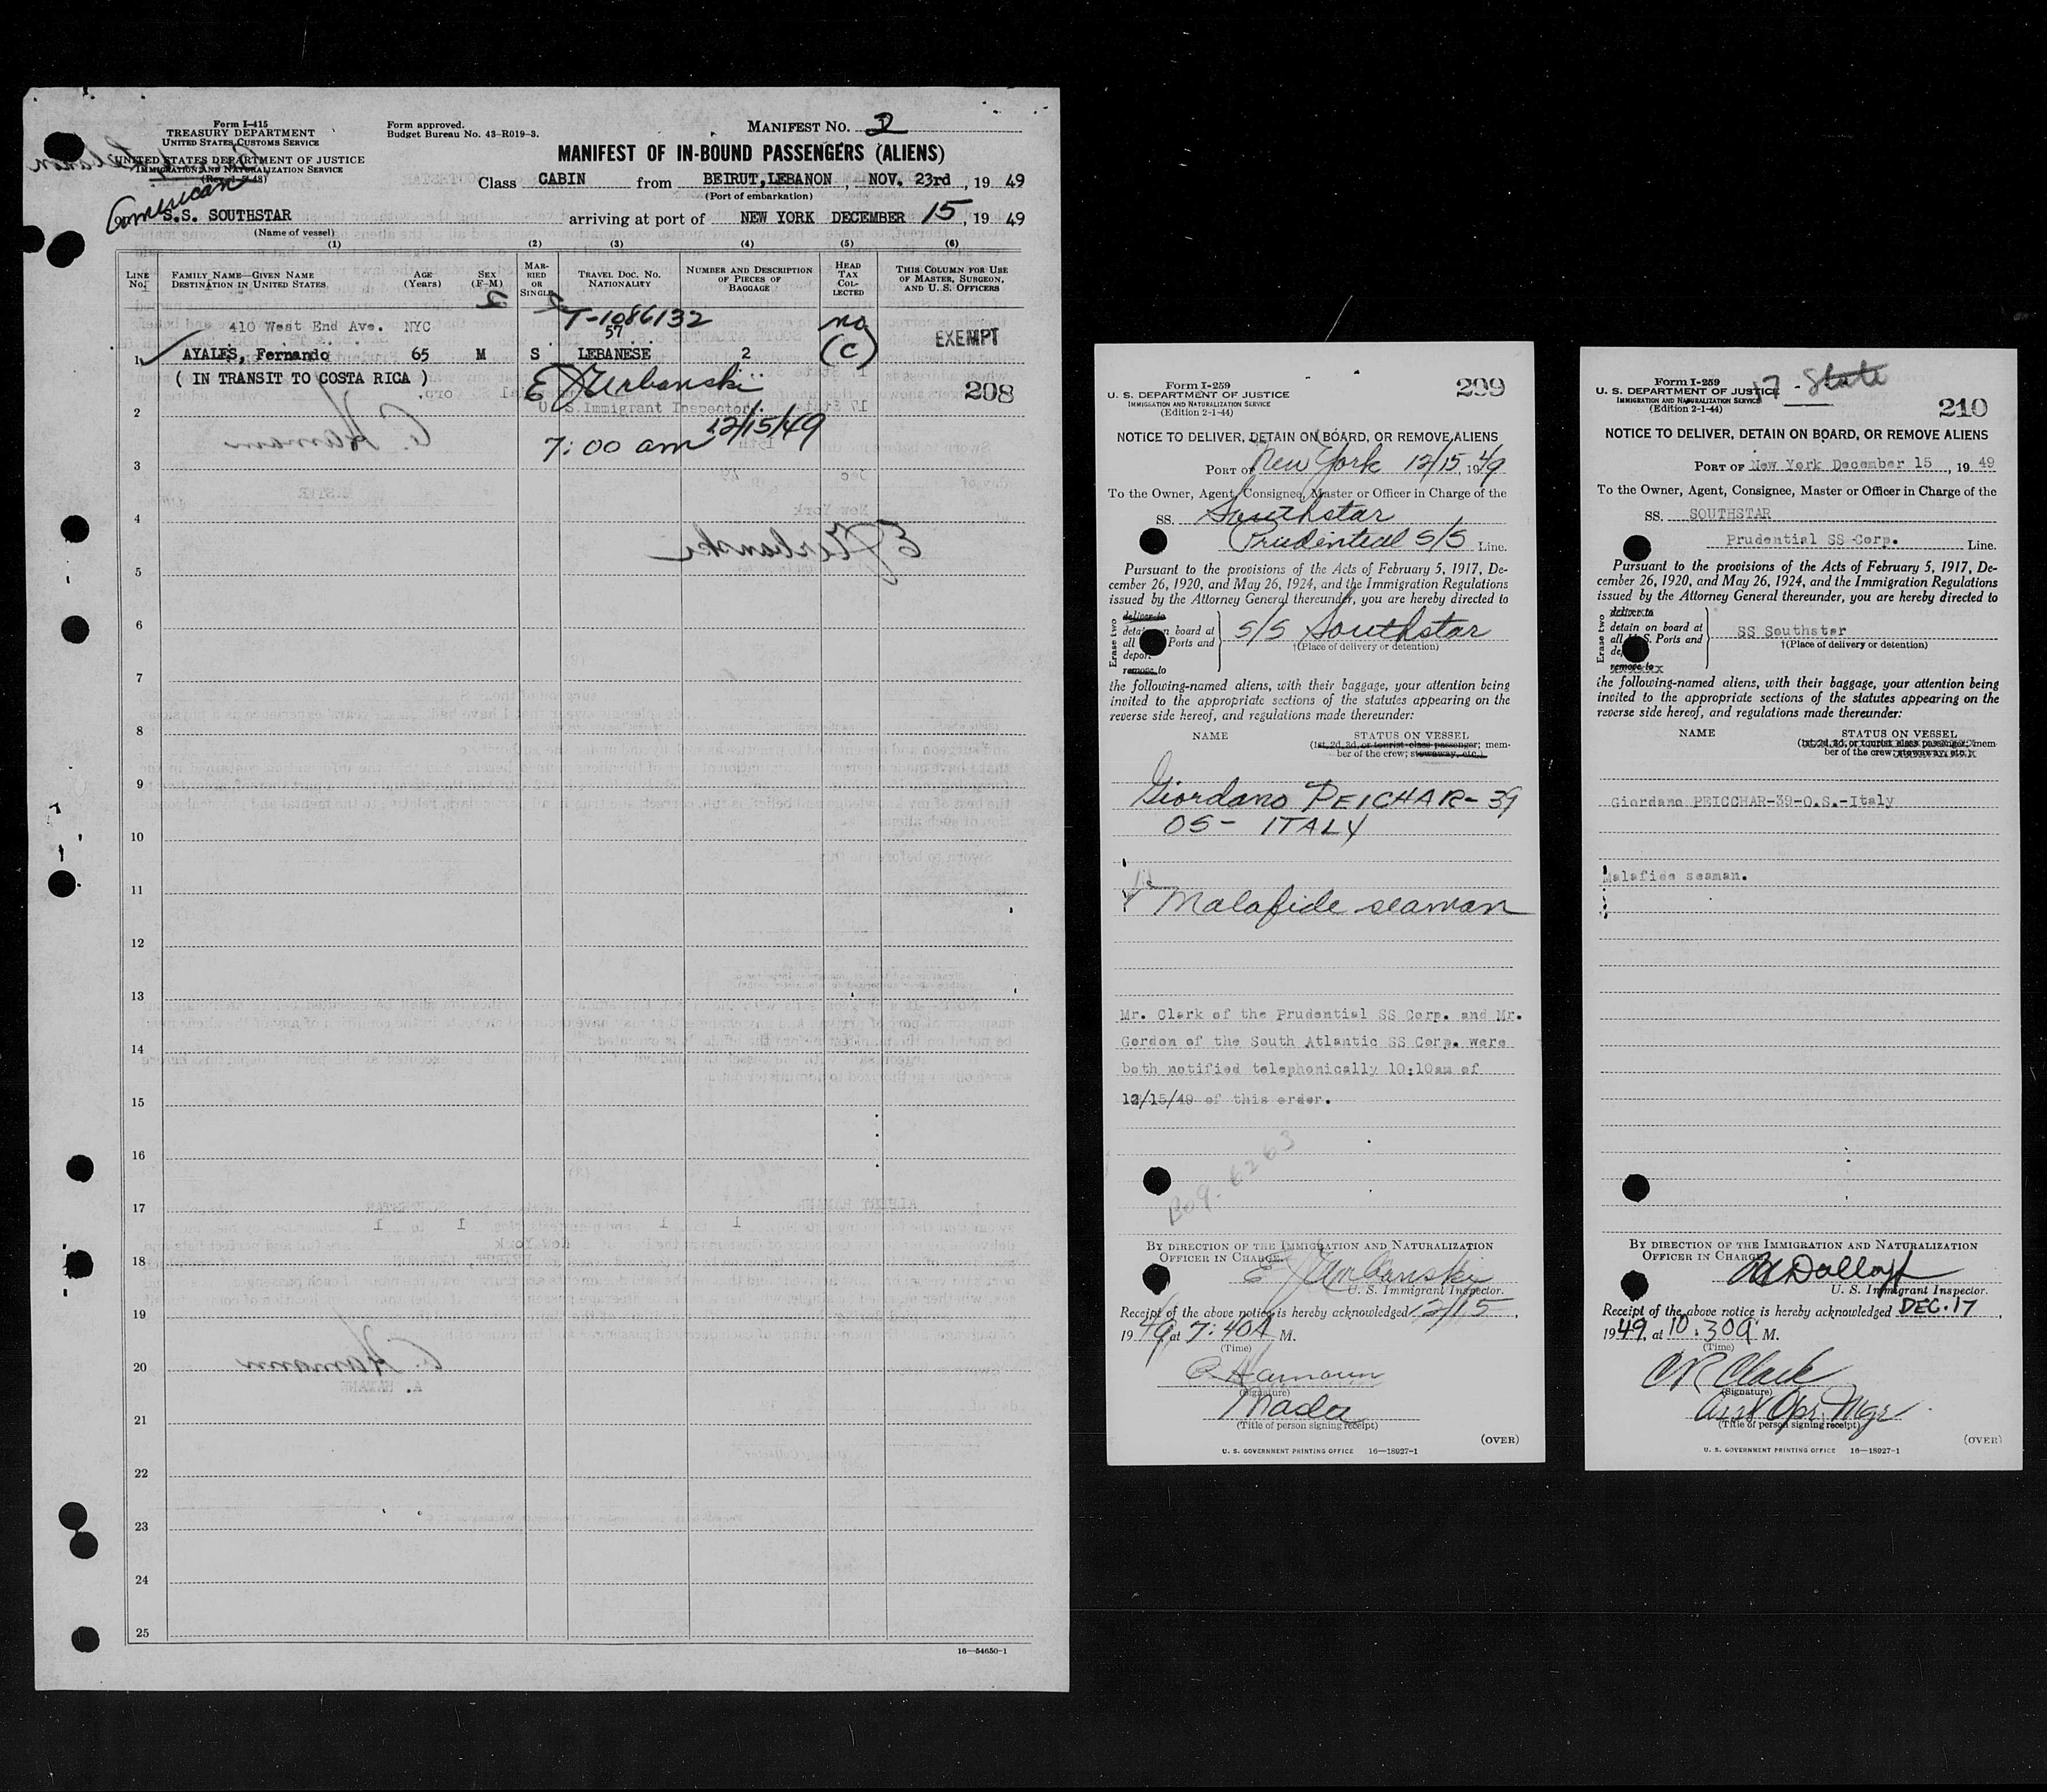 Form I-415
TREASURY DEPARTMENT
UNITED STATES CUSTOMS SERVICE
UNITED STATES DEPARTMENT OF JUSTICE
IMMIGRATION AND NATURALIZATION SERVICE
Form approved.
Budget Bureau No. 43-R019-3.
MANIFEST No. 2
MANIFEST OF IN-BOUND PASSENGERS (ALIENS)
Class CABIN from BEIRUT, LEBANON, NOV. 23rd, 1949
(Port of embarkation)
American
on S.S. SOUTHSTAR arriving at port of NEW YORK DECEMBER 15, 1949
(Name of vessel)
(1) (2) (3) (4) (5) (6)
LINE No. FAMILY NAME—GIVEN NAME DESTINATION IN UNITED STATES AGE (Years) SEX (F-M) MARRIED OR SINGLE TRAVEL DOC. NO. NATIONALITY NUMBER AND DESCRIPTION OF PIECES OF BAGGAGE HEAD TAX COLLECTED THIS COLUMN FOR USE OF MASTER, SURGEON, AND U. S. OFFICERS
410 West End Ave. NYC T-1086132 no
57
1 AYALES, Fernando 65 M S LEBANESE 2 (C) EXEMPT
( IN TRANSIT TO COSTA RICA ) E J Urbanski 208
2 U.S. Immigrant Inspector
7:00 am 12/15/49
3
4
5
6
7
8
9
10
11
12
13
14
15
16
17
18
19
20
21
22
23
24
25
16—54650-1
Form I-259
U. S. DEPARTMENT OF JUSTICE
IMMIGRATION AND NATURALIZATION SERVICE
(Edition 2-1-44)
209
NOTICE TO DELIVER, DETAIN ON BOARD, OR REMOVE ALIENS
PORT OF New York 12/15 1949
To the Owner, Agent, Consignee, Master or Officer in Charge of the
SS. Southstar
Prudential S/S Line.
Pursuant to the provisions of the Acts of February 5, 1917, De-
cember 26, 1920, and May 26, 1924, and the Immigration Regulations
issued by the Attorney General thereunder, you are hereby directed to
Erase two
deliver to
detain on board at
all Ports and
depor
remove to
S/S Southstar
†(Place of delivery or detention)
the following-named aliens, with their baggage, your attention being
invited to the appropriate sections of the statutes appearing on the
reverse side hereof, and regulations made thereunder:
NAME STATUS ON VESSEL
(1st, 2d, 3d, or tourist class passenger; mem-
ber of the crew; stowaway, etc.)
Giordano PEICHAR-39
OS- ITALY
Malafide seaman
Mr. Clark of the Prudential SS Corp. and Mr.
Gordon of the South Atlantic SS Corp. were
both notified telephonically 10:10am of
12/15/49 of this order.
BY DIRECTION OF THE IMMIGRATION AND NATURALIZATION
OFFICER IN CHARGE.
E J Urbanski
U. S. Immigrant Inspector.
Receipt of the above notice is hereby acknowledged 12/15,
1949, at 7:40A M.
(Time)
(Signature)
(Title of person signing receipt)
(OVER)
U. S. GOVERNMENT PRINTING OFFICE 16—18927-1
Form I-259
U. S. DEPARTMENT OF JUSTICE
IMMIGRATION AND NATURALIZATION SERVICE
(Edition 2-1-44)
17 - State
210
NOTICE TO DELIVER, DETAIN ON BOARD, OR REMOVE ALIENS
PORT OF New York December 15, 1949
To the Owner, Agent, Consignee, Master or Officer in Charge of the
SS. SOUTHSTAR
Prudential SS Corp. Line.
Pursuant to the provisions of the Acts of February 5, 1917, De-
cember 26, 1920, and May 26, 1924, and the Immigration Regulations
issued by the Attorney General thereunder, you are hereby directed to
Erase two
deliver to
detain on board at
all U. S. Ports and
remove to
SS Southstar
†(Place of delivery or detention)
the following-named aliens, with their baggage, your attention being
invited to the appropriate sections of the statutes appearing on the
reverse side hereof, and regulations made thereunder:
NAME STATUS ON VESSEL
(1st, 2d, 3d, or tourist class passenger; mem-
ber of the crew; stowaway, etc.)
Giordano PEICCHAR-39-O.S.-Italy
Malafide seaman.
BY DIRECTION OF THE IMMIGRATION AND NATURALIZATION
OFFICER IN CHARGE
U. S. Immigrant Inspector.
Receipt of the above notice is hereby acknowledged DEC. 17,
1949, at 10:30a M.
(Time)
CR Clark
(Signature)
Asst Opr. Mgr
(Title of person signing receipt)
(OVER)
U. S. GOVERNMENT PRINTING OFFICE 16—18927-1